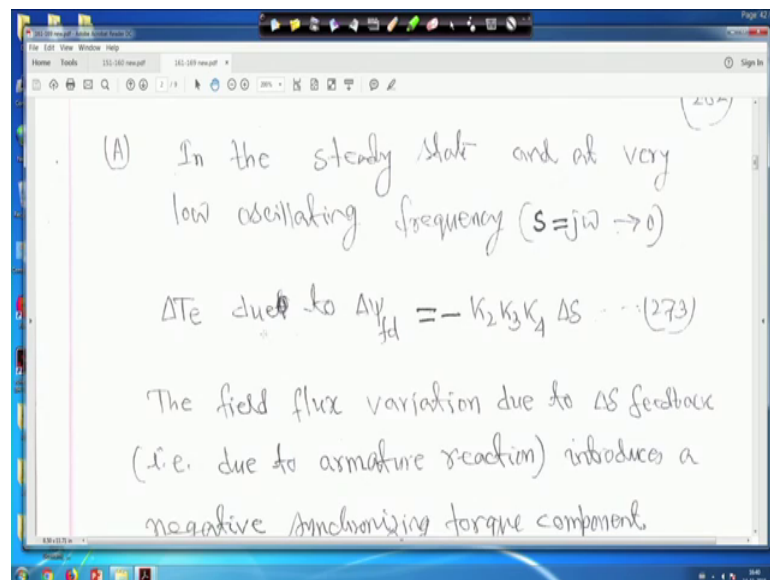 Page 42
161-169 new.pdf - Adobe Acrobat Reader DC
File Edit View Window Help
Home Tools 151-160 new.pdf 161-169 new.pdf × Sign In
2 / 9
(A) In the steady state and at very
low oscillating frequency (S=jω →0)
ΔTe due to Δψfd = - K2K3K4 Δδ ---(273)
The field flux variation due to Δδ feedback
(i.e. due to armature reaction) introduces a
negative synchronizing torque component.